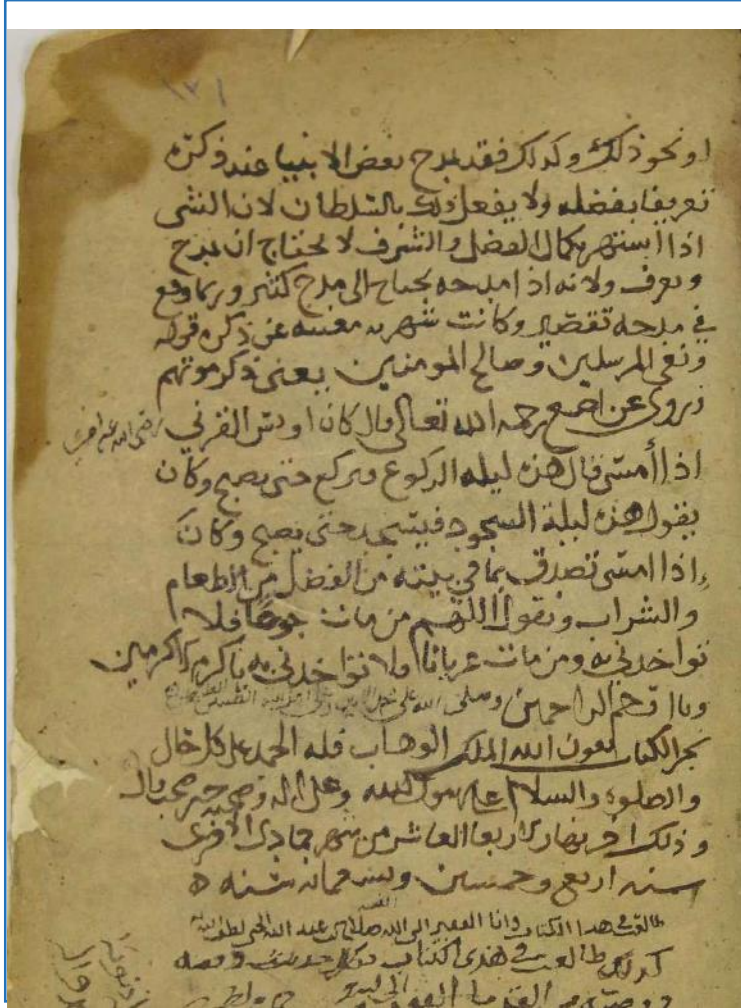 ١٣١
او نحو ذلك وكدلك فقد يمدح بعض الانبيا عند ذكره
تعريفا بفضله ولا يفعل ذلك بالسلطان لان الشى
اذا استهر بكمال الفضل والشرف لا يحتاج ان يمدح
ويعرف ولانه اذا مدحه يحتاج الى مدح كثير وربما وقع
في مدحه تقصير وكانت شهرته مغنيه عن ذكره قوله
ونعى المرسلين وصالح المومنين يعنى ذكر موتهم
وروى عن اصبع رحمه الله تعالى قال كان اويس القرني
رضى الله عنه
اذا أمسى قال هذه ليله الركوع فيركع حتى يصبح وكان
يقول هذه ليلة السجود فيسجد حتى يصبح وكان
اذا امسى تصدق بما في بيته من الفضل من الطعام
والشراب ويقول اللهم من مات جوعا فلا
تواخدني به ومن مات عريانا ولا تواخدني به ياكرم الاكرمين
ويا ارحم الراحمين وصلى الله على
نجز الكتاب بعون الله الملك الوهاب فله الحمد على كل حال
والصلوه والسلام على رسول الله وعلى اله وصحبه خير صحب وال
وذلك اخر نهار الاربعا العاشر من شهر جمادى الاخرى
سنه اربع وخمسين وسعمائه سنه
طالعت في هدا الكتاب وانا الفقير الى الله عبد الله
كدلك طالعت في هدى الكتاب